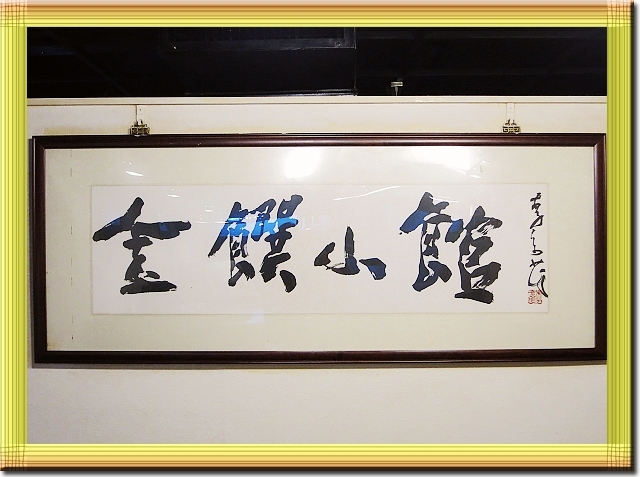 金饌小館